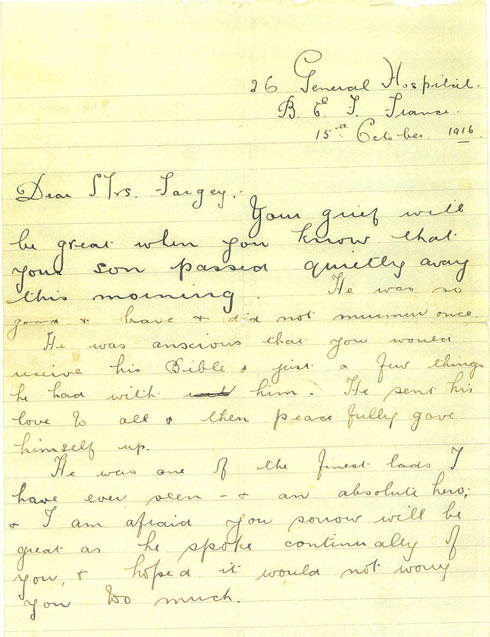 26 General Hospital.
B. E. F. France.
15th October 1916
Dear Mrs. Targey.
Your grief will
be great when you know that
your son passed quietly away
this morning. He was so
good & brave & did not murmur once.
He was anscious that you would
receive his Bible & just a few things
he had with him. He sent his
love to all & then peacefully gave
himself up.
He was one of the finest lads I
have ever seen - & an absolute hero;
& I am afraid you sorrow will be
great as he spoke continually of
you, & hoped it would not worry
you too much.